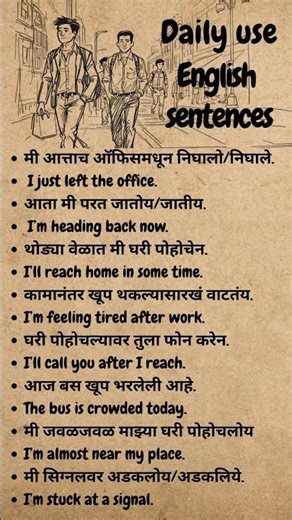 Daily use
English
sentences
• मी आत्ताच ऑफिसमधून निघालो/निघाले.
• I just left the office.
• आता मी परत जातोय/जातीय.
• I'm heading back now.
• थोड्या वेळात मी घरी पोहोचेन.
• I'll reach home in some time.
• कामानंतर खूप थकल्यासारखं वाटतंय.
• I'm feeling tired after work.
• घरी पोहोचल्यावर तुला फोन करेन.
• I'll call you after I reach.
• आज बस खूप भरलेली आहे.
• The bus is crowded today.
• मी जवळजवळ माझ्या घरी पोहोचलोय
• I'm almost near my place.
• मी सिग्नलवर अडकलोय/अडकलिये.
• I'm stuck at a signal.